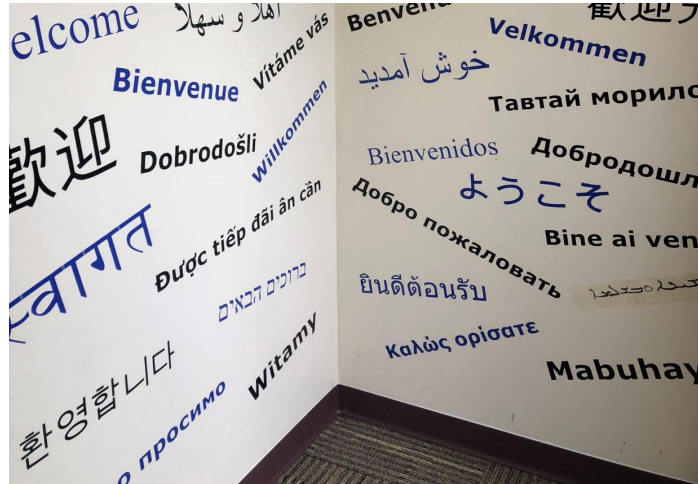 elcome
اهلا و سهلا
Vítáme vás
Bienvenue
Willkommen
歡迎
Dobrodošli
स्वागत
Được tiếp đãi ân cần
ברוכים הבאים
환영합니다
Witamy
о просимо
Benvenu
歡迎
Velkommen
خوش آمدید
Тавтай морилс
Bienvenidos
Добродошл
ようこそ
Добро пожаловать
Bine ai ven
ยินดีต้อนรับ
Καλώς ορίσατε
Mabuhay